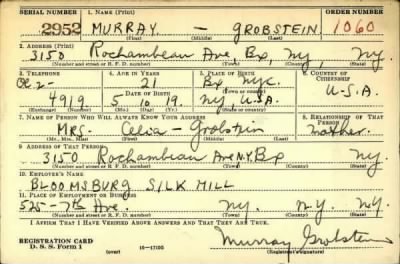 SERIAL NUMBER 1. NAME (Print) ORDER NUMBER
2952 MURRAY — GROBSTEIN. 1060
(First) (Middle) (Last)
2. ADDRESS (Print)
3150 Rochambeau Ave, Bx, Ny, Ny.
(Number and street or R. F. D. number) (Town) (County) (State)
3. TELEPHONE 4. AGE IN YEARS 5. PLACE OF BIRTH 6. COUNTRY OF CITIZENSHIP
Ol. 2- 21 Bx NYC.
DATE OF BIRTH (Town or county) U.S.A.
4919 5 10 19. NY U.S.A.
(Exchange) (Number) (Mo.) (Day) (Yr.) (State or country)
7. NAME OF PERSON WHO WILL ALWAYS KNOW YOUR ADDRESS 8. RELATIONSHIP OF THAT PERSON
Mrs. — Celia — Grobstein Mother.
(Mr., Mrs., Miss) (First) (Middle) (Last)
9. ADDRESS OF THAT PERSON
3150 Rochambeau Ave N.Y. Bx Ny.
(Number and street or R. F. D. number) (Town) (County) (State)
10. EMPLOYER'S NAME
BLOOMSBURG SILK MILL
11. PLACE OF EMPLOYMENT OR BUSINESS
525-7th Ave. Ny. N.Y. NY
(Number and street or R. F. D. number) (Town) (County) (State)
I AFFIRM THAT I HAVE VERIFIED ABOVE ANSWERS AND THAT THEY ARE TRUE.
REGISTRATION CARD
D. S. S. Form 1 (over) 16—17105 Murray Grobstein
(Registrant's signature)